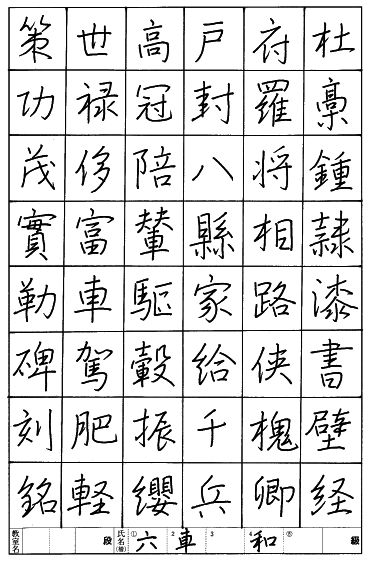 杜稾鍾隷漆書壁経
府羅将相路侠槐卿
戸封八縣家給千兵
高冠陪輦驅轂振纓
世禄侈富車駕肥軽
策功茂實勒碑刻銘
教室名 段 氏名(楷) ①六 2車 3 4和 ⑤ 級